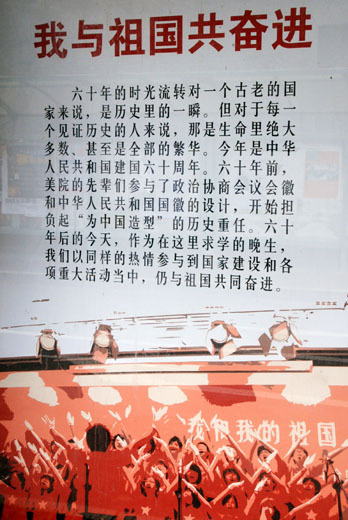 我与祖国共奋进
六十年的时光流转对一个古老的国
家来说，是历史里的一瞬。但对于每一
个见证历史的人来说，那是生命里绝大
多数、甚至是全部的繁华。今年是中华
人民共和国建国六十周年。六十年前，
美院的先辈们参与了政治协商会议会徽
和中华人民共和国国徽的设计，开始担
负起“为中国造型”的历史重任。六十
年后的今天，作为在这里求学的晚生，
我们以同样的热情参与到国家建设和各
项重大活动当中，仍与祖国共同奋进。
我和我的祖国